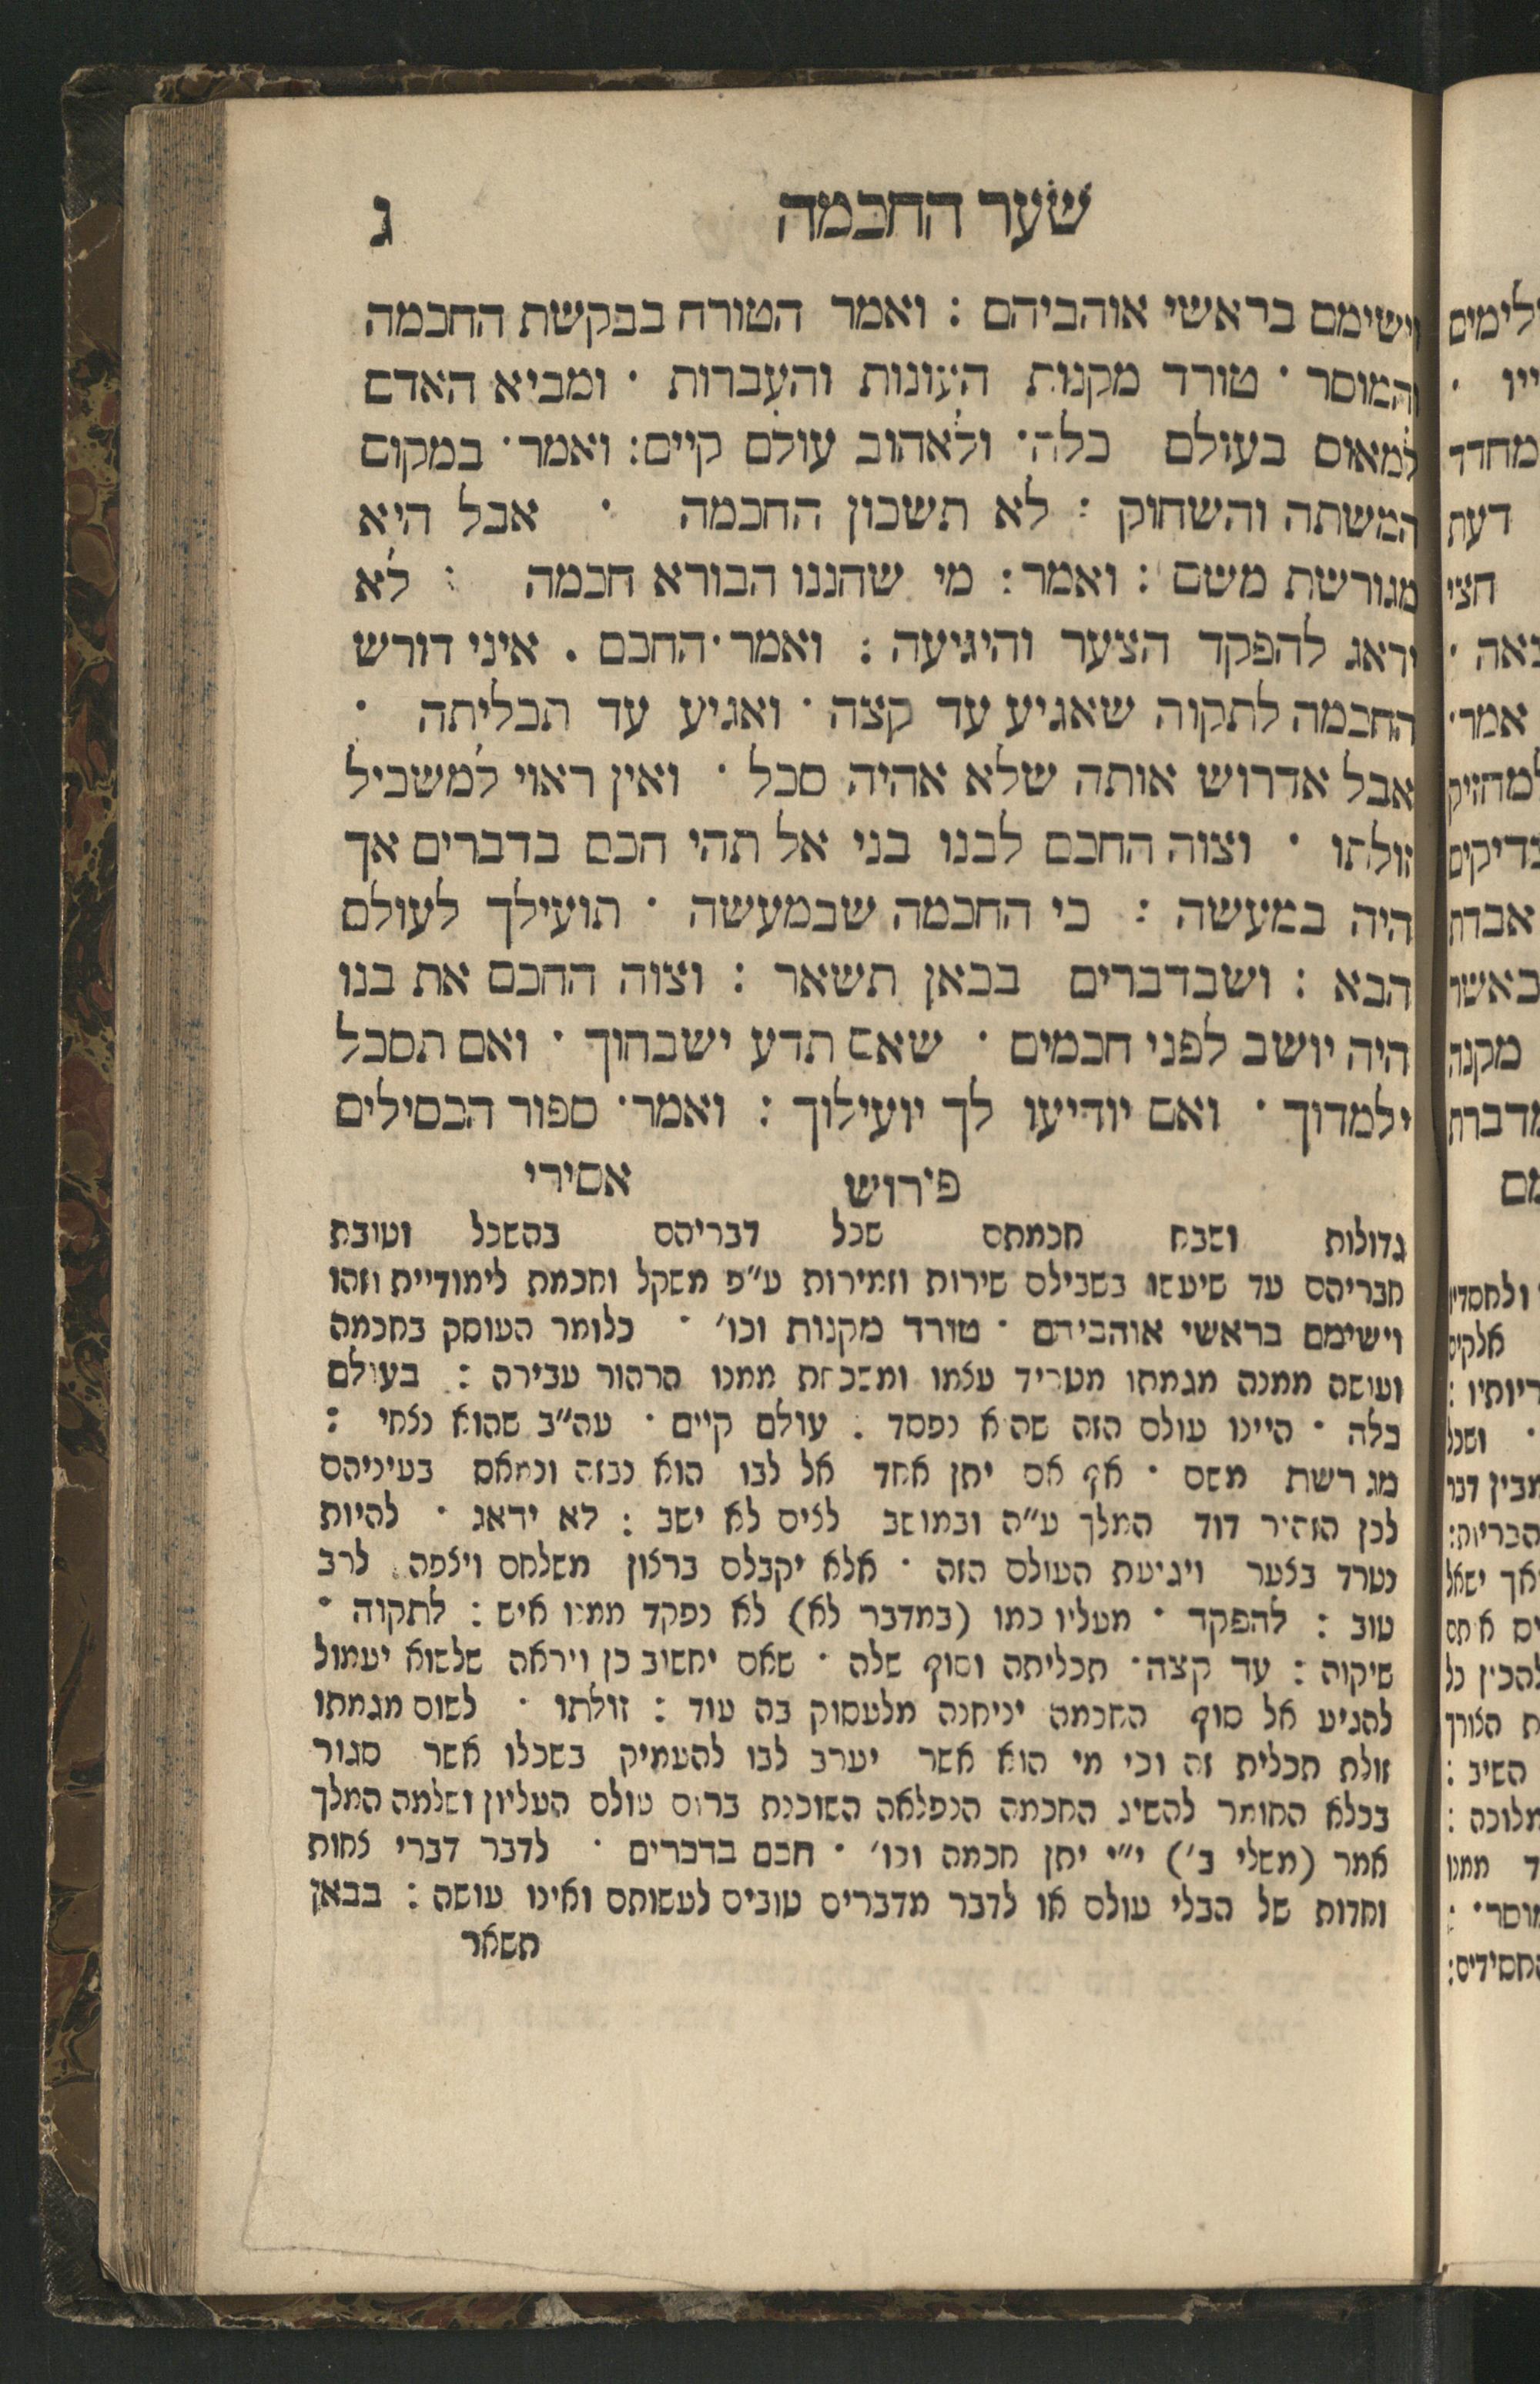 שער החכמה
ג
וישימם בראשי אוהביהם : ואמר הטורח בבקשת החכמה
והמוסר · טורד מקנות העונות והעברות · ומביא האדם
למאוס בעולם כלה · ולאהוב עולם קיים : ואמר · במקום
המשתה והשחוק : לא תשכון החכמה · אבל היא
מגורשת משם : ואמר : מי שהננו הבורא חכמה : לא
ידאג להפקד הצער והיגיעה : ואמר · החכם . איני דורש
החכמה לתקוה שאגיע עד קצה · ואגיע עד תכליתה ·
אבל אדרוש אותה שלא אהיה סכל · ואין ראוי למשכיל
זולתו · וצוה החכם לבנו בני אל תהי חכם בדברים אך
היה במעשה : כי החכמה שבמעשה · תועילך לעולם
הבא : ושבדברים בכאן תשאר : וצוה החכם את בנו
היה יושב לפני חכמים · שאם תדע ישבחוך · ואם תסכל
ילמדוך · ואם יודיעו לך יועילוך : ואמר · ספור הכסילים
פירוש אסירי
גדולות ושבח חכמתם שכל דבריהם בהשכל וטובת
חבריהם עד שיעשו בשבילם שירות וזמירות ע"פ משקל וחכמת לימודיית וזהו
וישימם בראשי אוהביהם · טורד מקנות וכו' · כלומר העוסק בחכמה
ועושה ממנה מגמתו מטריד עצמו ומשכחת ממנו הרהור עבירה : בעולם
כלה · היינו עולם הזה שהוא נפסד : עולם קיים · עה"ב שהוא נצחי :
מגורשת משם · אף אם יתן אחד אל לבו הוא נבזה ונמאס בעיניהם
לכן הזהיר דוד המלך ע"ה ובמושב לצים לא ישב : לא ידאג · להיות
נטרד בצער ויגיעת העולם הזה · אלא יקבלם ברצון משלחם ויצפה לרב
טוב : להפקד · מעליו כמו (במדבר לא) לא נפקד ממנו איש : לתקוה ·
שיקוה : עד קצה · תכליתה וסוף שלה · שאם יחשוב כן ויראה שלשוא יעמול
להגיע אל סוף החכמה יניחנה מלעסוק בה עוד : זולתו · לשום מגמתו
זולת תכלית זה וכי מי הוא אשר יערב לבו להעמיק בשכלו אשר סגור
בכלא החומר להשיג החכמה הנפלאה השוכנת ברום עולם העליון ושלמה המלך
אמר (משלי ב') י"י יתן חכמה וכו' · חכם בדברים · לדבר דברי צחות
וחדות של הבלי עולם או לדבר מדברים טובים לעשותם ואינו עושה : בכאן
תשאר